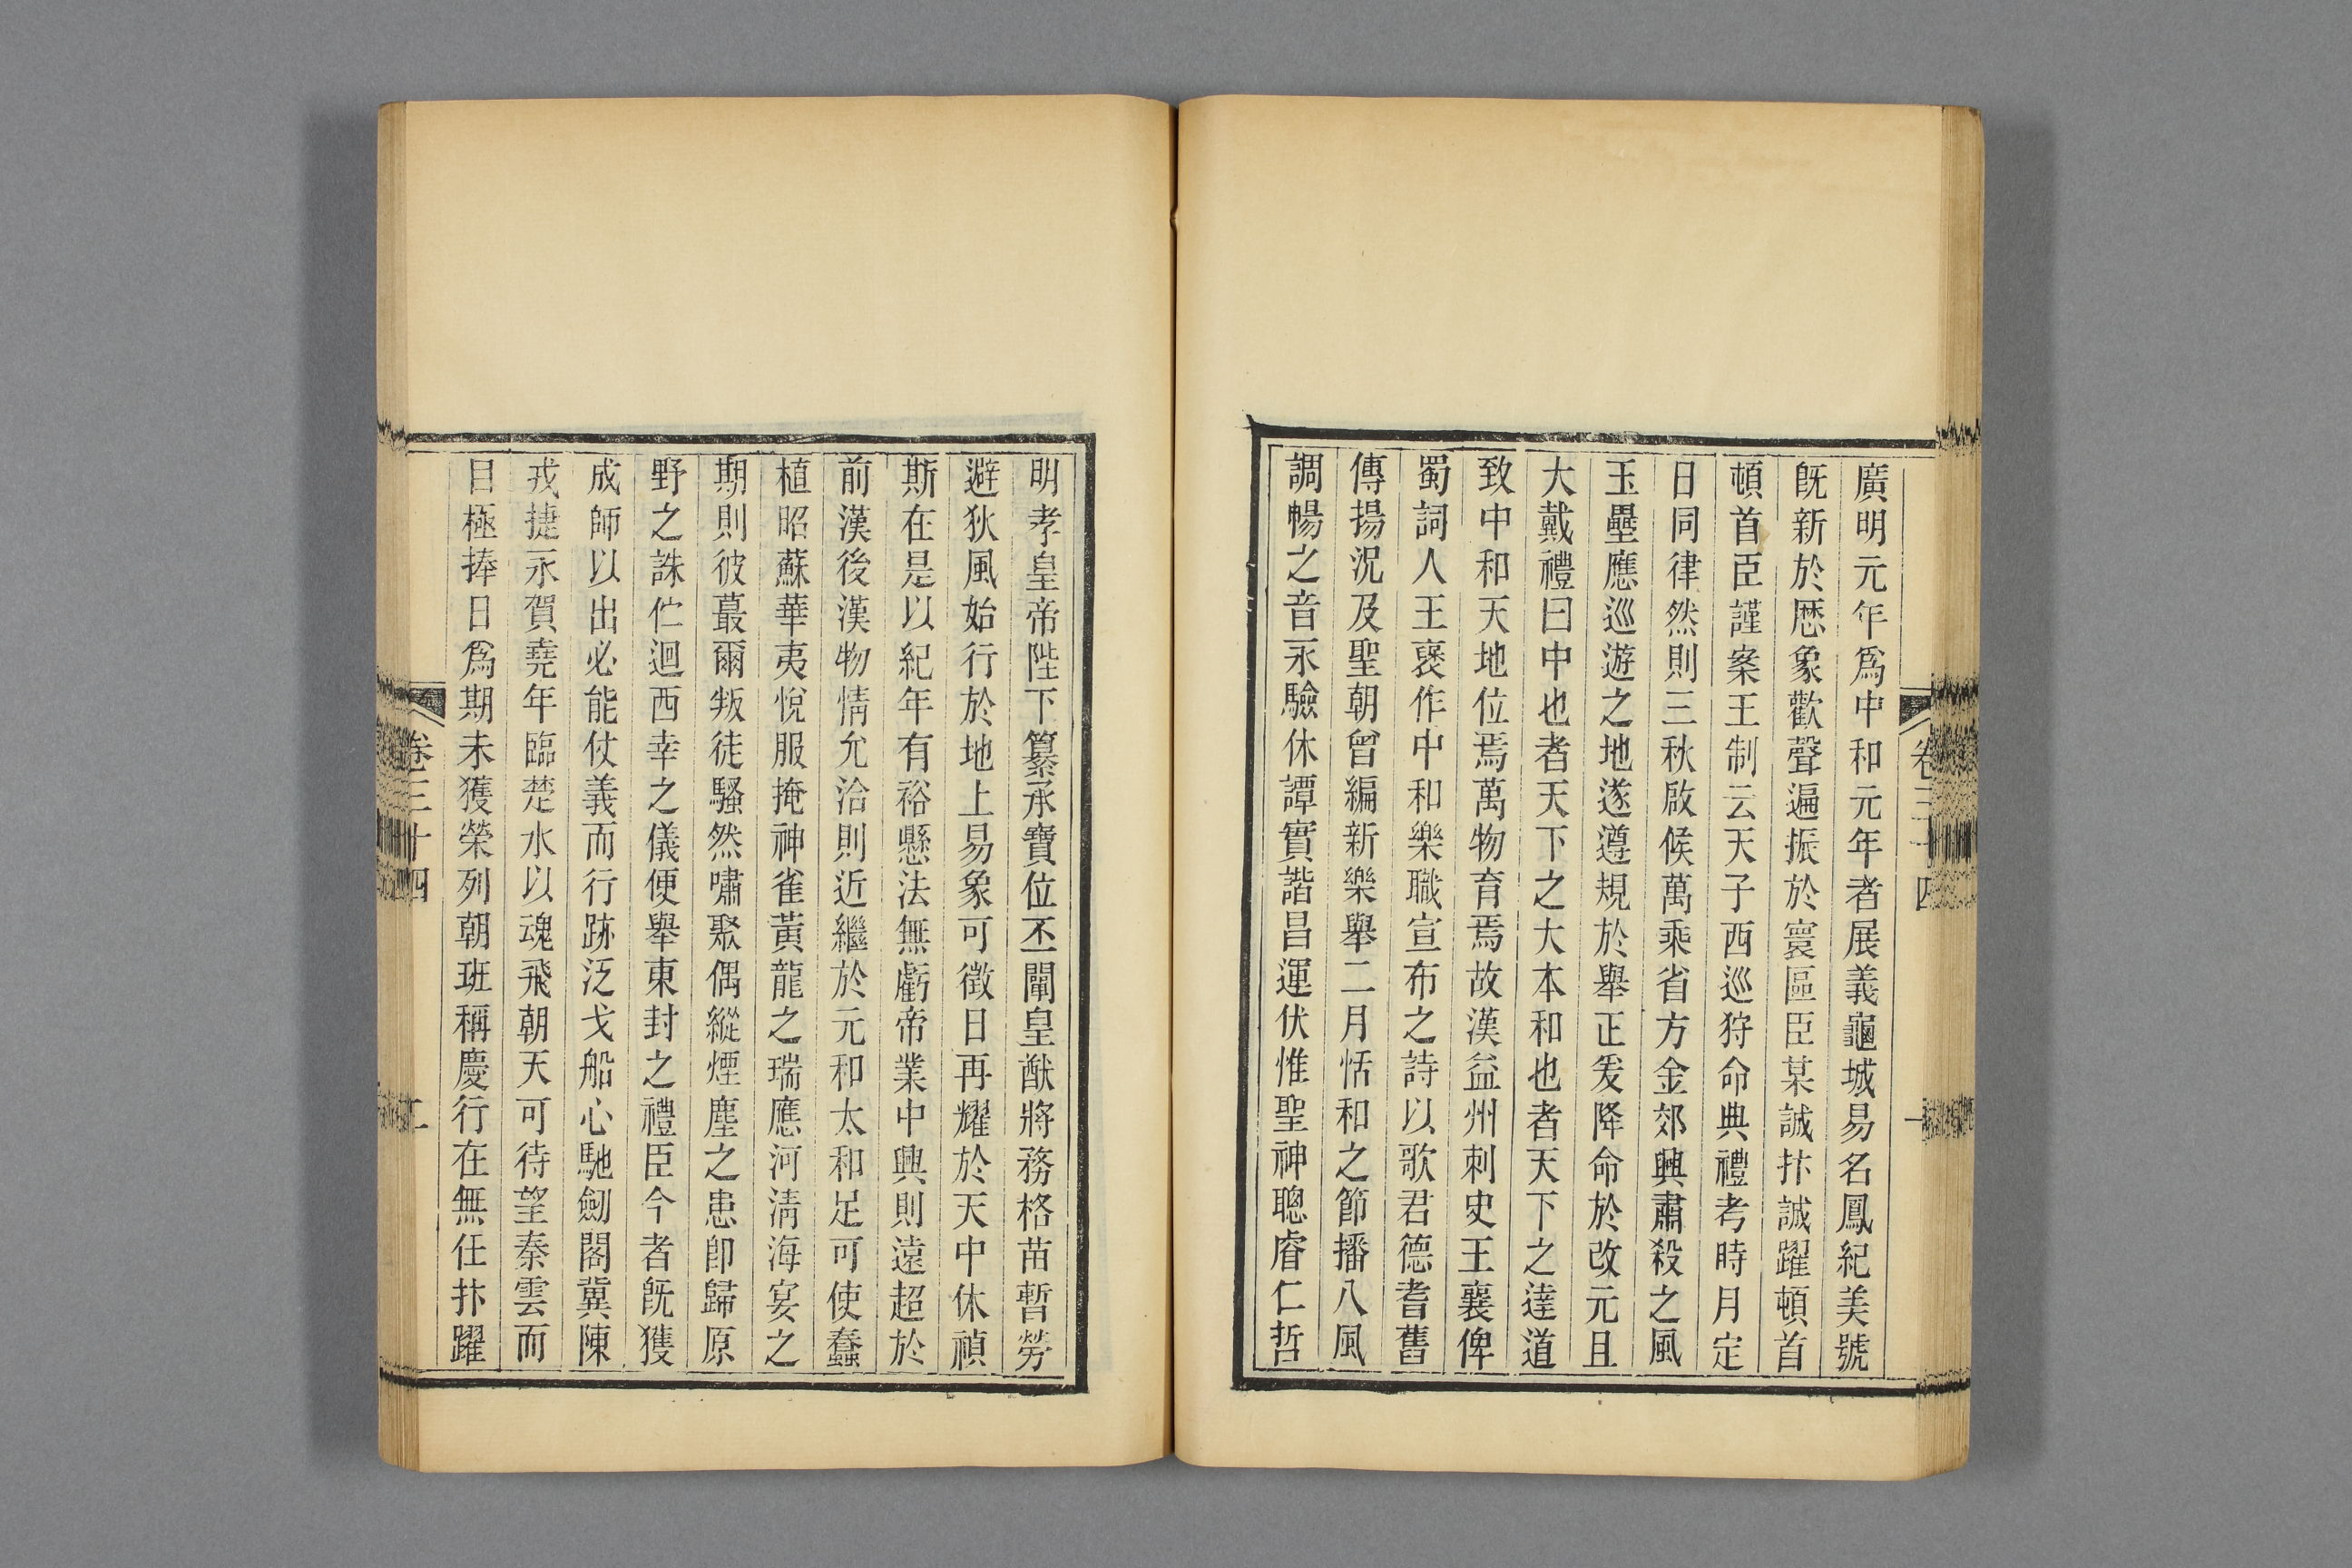 廣明元年爲中和元年者展義龜城易名鳳紀美號
旣新於歷象歡聲遍振於寰區臣某誠抃誠躍頓首
頓首臣謹案王制云天子西巡狩命典禮考時月定
日同律然則三秋啟候萬乘省方金郊興肅殺之風
玉壘應巡遊之地遂遵規於舉正爰降命於改元且
大戴禮曰中也者天下之大本和也者天下之達道
致中和天地位焉萬物育焉故漢益州刺史王襄俾
蜀詞人王褒作中和樂職宣布之詩以歌君德耆舊
傳揚況及聖朝曾編新樂舉二月恬和之節播八風
調暢之音永驗休譚實諧昌運伏惟聖神聰睿仁哲
卷三十四
一
明孝皇帝陛下纂承寶位丕闡皇猷將務格苗暫勞
避狄風始行於地上易象可徵日再耀於天中休禎
斯在是以紀年有裕懸法無虧帝業中興則遠超於
前漢後漢物情允洽則近繼於元和太和足可使蠢
植昭蘇華夷悅服掩神雀黃龍之瑞應河淸海宴之
期則彼蕞爾叛徒騷然嘯聚偶縱煙塵之患卽歸原
野之誅伫迴西幸之儀便舉東封之禮臣今者旣獲
成師以出必能仗義而行跡泛戈船心馳劒閣冀陳
戎捷永賀堯年臨楚水以魂飛朝天可待望秦雲而
目極捧日爲期未獲榮列朝班稱慶行在無任抃躍
卷三十四
二